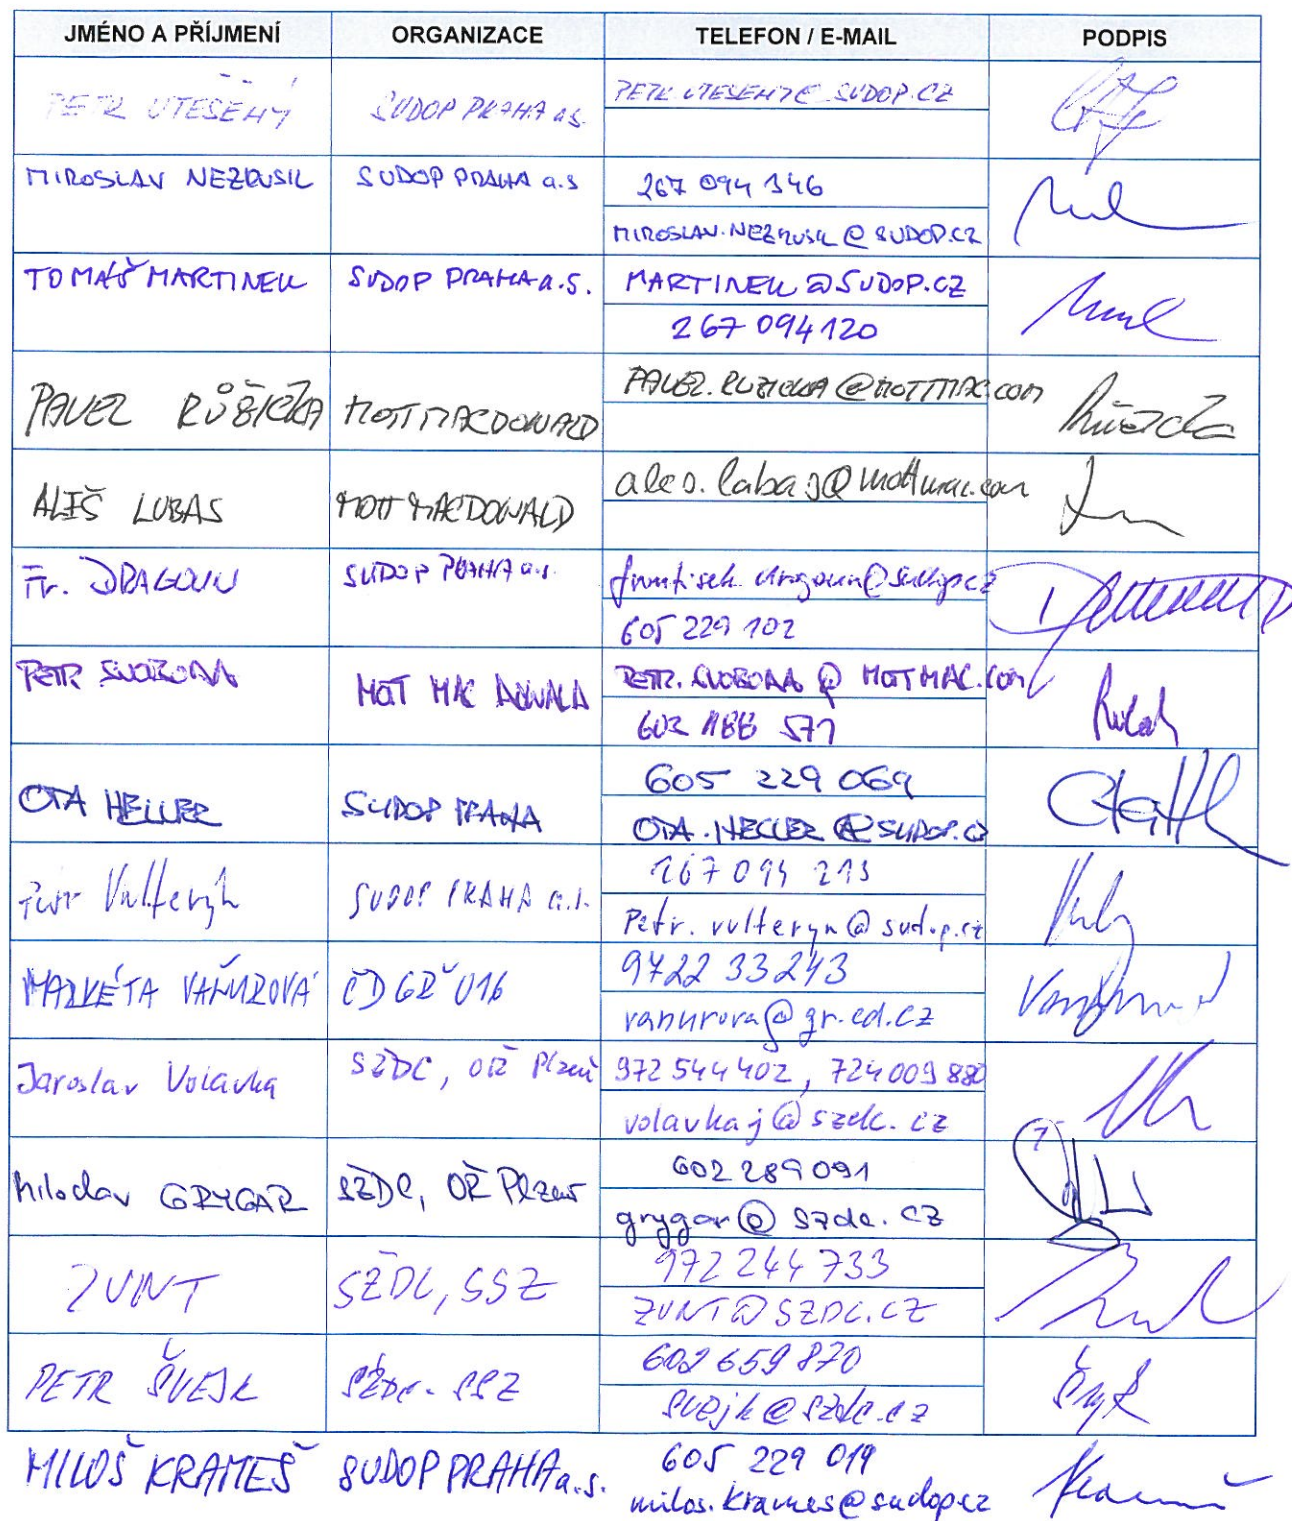 JMÉNO A PŘÍJMENÍ ORGANIZACE TELEFON / E-MAIL PODPIS
PETR UTĚŠENÝ SUDOP PRAHA a.s. PETR.UTESENY@SUDOP.CZ
MIROSLAV NEZKUSIL SUDOP PRAHA a.s 267 094 346
MIROSLAV.NEZKUSIL@SUDOP.CZ
TOMÁŠ MARTINEK SUDOP PRAHA a.s. MARTINEK@SUDOP.CZ
267 094 120
PAVEL RŮŽIČKA MOTT MACDONALD PAVEL.RUZICKA@MOTTMAC.COM
ALEŠ LUBAS MOTT MACDONALD
Fr. DRAGOUN SUDOP PRAHA a.s. frantisek.dragoun@sudop.cz
605 229 102
PETR SVOBODA MOT MAC DONALD PETR.SVOBODA@MOTTMAC.COM
602 188 571
OTA HELLER SUDOP PRAHA 605 229 069
OTA.HELLER@SUDOP.CZ
Petr Vulteryn SUDOP PRAHA a.s. 267 094 213
Petr.vulteryn@sudop.cz
MARKÉTA VAŇUROVÁ ČD GŘ 016 9722 33243
vanurova@gr.cd.cz
Jaroslav Volavka SŽDC, OŘ Plzeň 972 544 402, 724 009 880
volavkaj@szdc.cz
Miloslav GRYGAR SŽDC, OŘ Plzeň 602 289 091
grygar@szdc.cz
ZUNT SŽDC, SSZ 972 244 733
ZUNT@SZDC.CZ
PETR ŠVEJK SŽDC-SSZ 602 659 870
svejk@szdc.cz
MILOŠ KRAMEŠ SUDOP PRAHA a.s. 605 229 019
milos.krames@sudop.cz